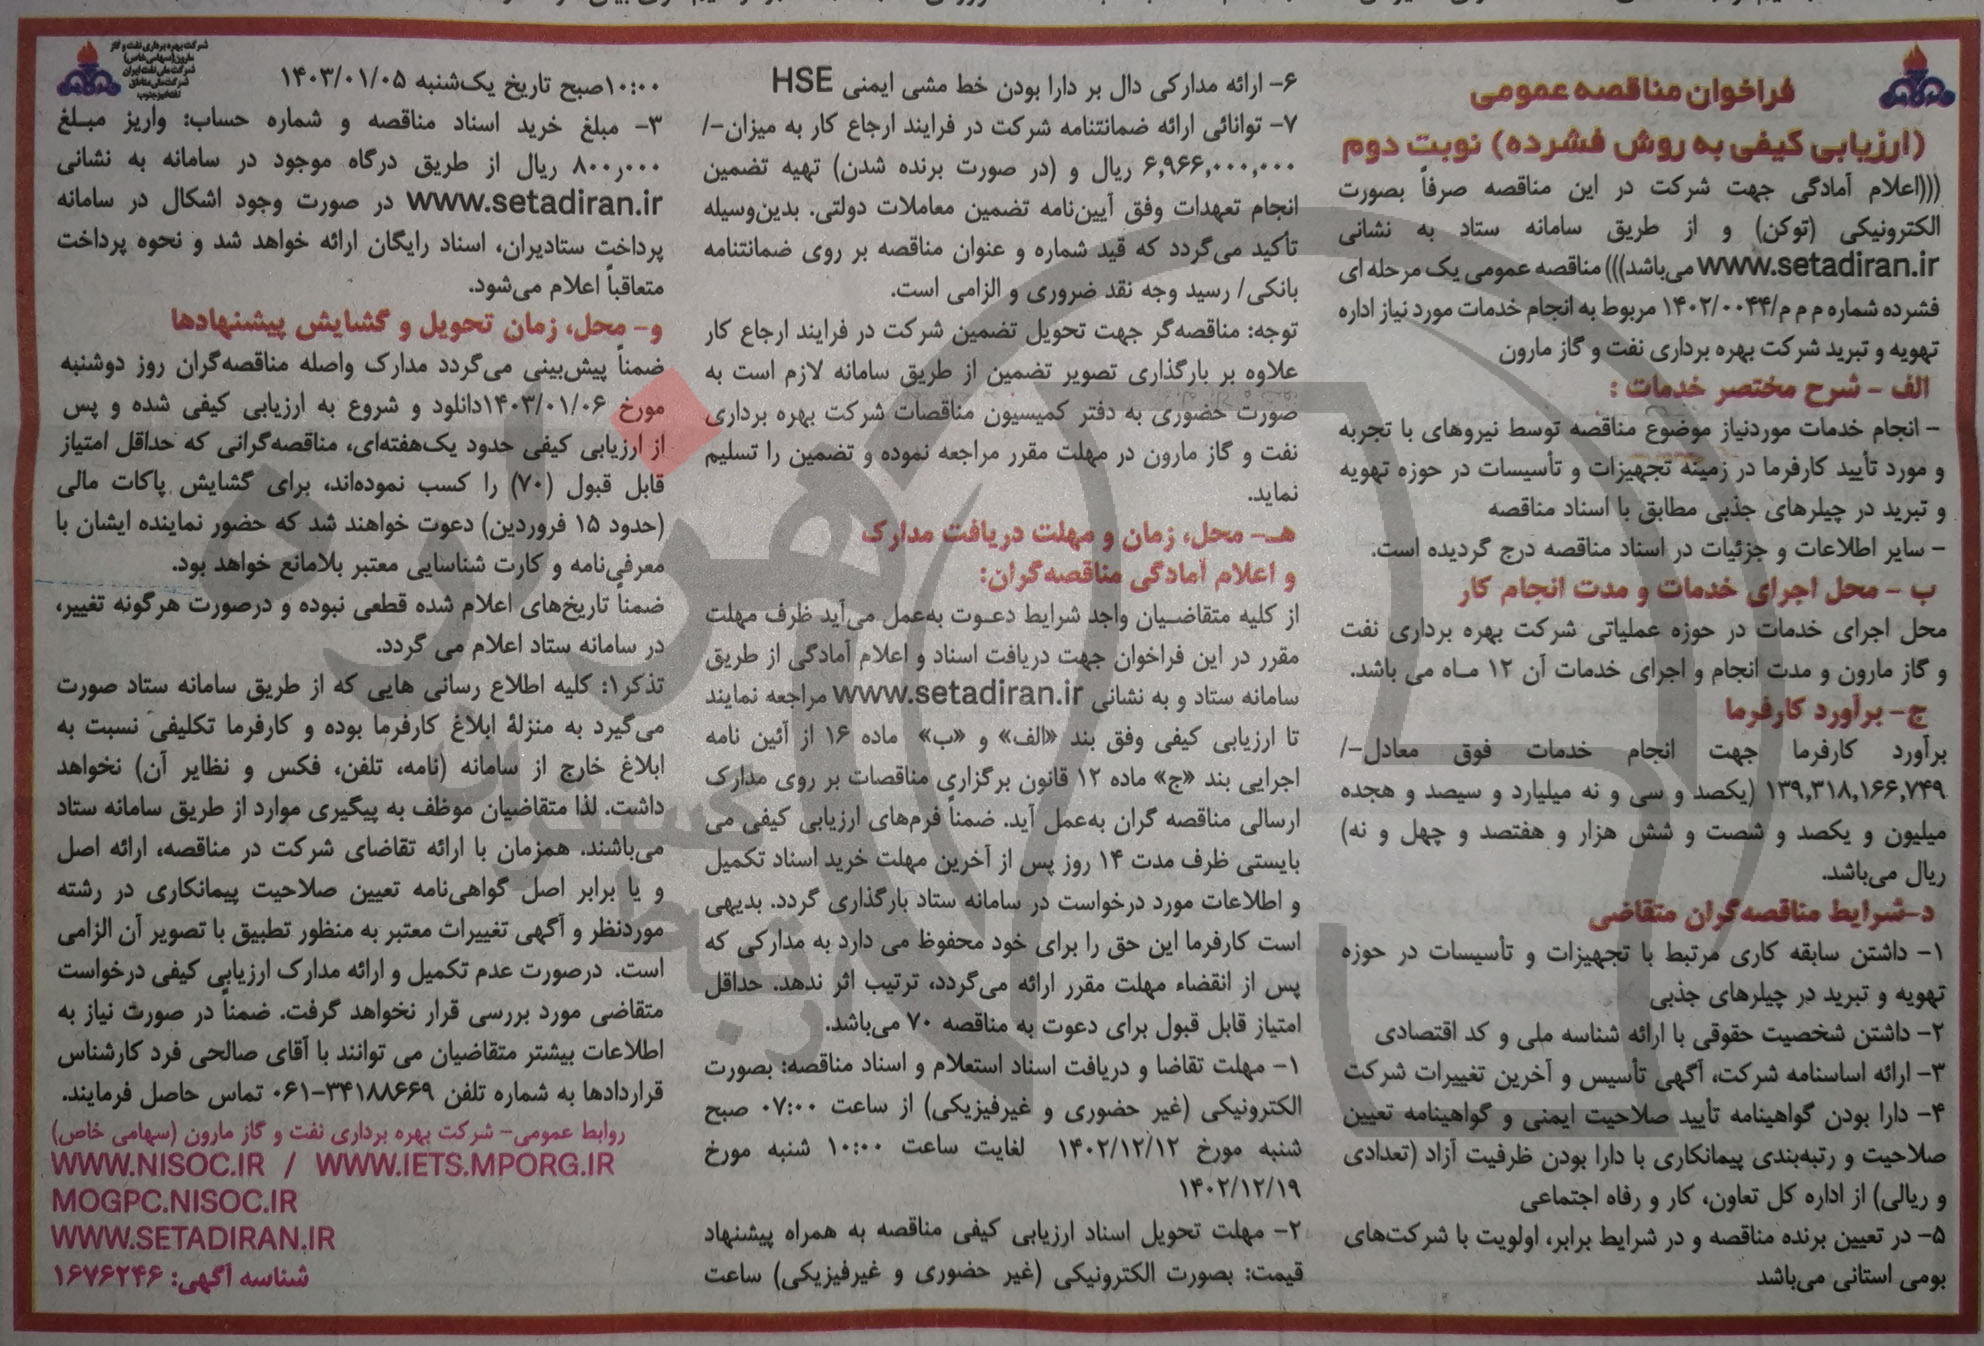 فراخوان مناقصه عمومی
(ارزیابی کیفی به روش فشرده) نوبت دوم
(((اعلام آمادگی جهت شرکت در این مناقصه صرفاً بصورت
الکترونیکی (توکن) و از طریق سامانه ستاد به نشانی
www.setadiran.ir می‌باشد))) مناقصه عمومی یک مرحله ای
فشرده شماره م م م/۱۴۰۲/۰۰۴۴ مربوط به انجام خدمات مورد نیاز اداره
تهویه و تبرید شرکت بهره برداری نفت و گاز مارون
الف - شرح مختصر خدمات :
- انجام خدمات موردنیاز موضوع مناقصه توسط نیروهای با تجربه
و مورد تأیید کارفرما در زمینه تجهیزات و تأسیسات در حوزه تهویه
و تبرید در چیلرهای جذبی مطابق با اسناد مناقصه
- سایر اطلاعات و جزئیات در اسناد مناقصه درج گردیده است.
ب - محل اجرای خدمات و مدت انجام کار
محل اجرای خدمات در حوزه عملیاتی شرکت بهره برداری نفت
و گاز مارون و مدت انجام و اجرای خدمات آن ۱۲ ماه می باشد.
ج- برآورد کارفرما
برآورد کارفرما جهت انجام خدمات فوق معادل-/
۱۳۹,۳۱۸,۱۶۶,۷۴۹ (یکصد و سی و نه میلیارد و سیصد و هجده
میلیون و یکصد و شصت و شش هزار و هفتصد و چهل و نه)
ریال می‌باشد.
د-شرایط مناقصه‌گران متقاضی
۱- داشتن سابقه کاری مرتبط با تجهیزات و تأسیسات در حوزه
تهویه و تبرید در چیلرهای جذبی
۲- داشتن شخصیت حقوقی با ارائه شناسه ملی و کد اقتصادی
۳- ارائه اساسنامه شرکت، آگهی تأسیس و آخرین تغییرات شرکت
۴- دارا بودن گواهینامه تأیید صلاحیت ایمنی و گواهینامه تعیین
صلاحیت و رتبه‌بندی پیمانکاری با دارا بودن ظرفیت آزاد (تعدادی
و ریالی) از اداره کل تعاون، کار و رفاه اجتماعی
۵- در تعیین برنده مناقصه و در شرایط برابر، اولویت با شرکت‌های
بومی استانی می‌باشد
۶- ارائه مدارکی دال بر دارا بودن خط مشی ایمنی HSE
۷- توانائی ارائه ضمانتنامه شرکت در فرایند ارجاع کار به میزان-/
۶,۹۶۶,۰۰۰,۰۰۰ ریال و (در صورت برنده شدن) تهیه تضمین
انجام تعهدات وفق آیین‌نامه تضمین معاملات دولتی. بدین‌وسیله
تأکید می‌گردد که قید شماره و عنوان مناقصه بر روی ضمانتنامه
بانکی/ رسید وجه نقد ضروری و الزامی است.
توجه: مناقصه‌گر جهت تحویل تضمین شرکت در فرایند ارجاع کار
علاوه بر بارگذاری تصویر تضمین از طریق سامانه لازم است به
صورت حضوری به دفتر کمیسیون مناقصات شرکت بهره برداری
نفت و گاز مارون در مهلت مقرر مراجعه نموده و تضمین را تسلیم
نماید.
هـ- محل، زمان و مهلت دریافت مدارک
و اعلام آمادگی مناقصه‌گران:
از کلیه متقاضیان واجد شرایط دعوت به‌عمل می‌آید ظرف مهلت
مقرر در این فراخوان جهت دریافت اسناد و اعلام آمادگی از طریق
سامانه ستاد و به نشانی www.setadiran.ir مراجعه نمایند
تا ارزیابی کیفی وفق بند «الف» و «ب» ماده ۱۶ از آئین نامه
اجرایی بند «ج» ماده ۱۲ قانون برگزاری مناقصات بر روی مدارک
ارسالی مناقصه گران به‌عمل آید. ضمناً فرم‌های ارزیابی کیفی می
بایستی ظرف مدت ۱۴ روز پس از آخرین مهلت خرید اسناد تکمیل
و اطلاعات مورد درخواست در سامانه ستاد بارگذاری گردد. بدیهی
است کارفرما این حق را برای خود محفوظ می دارد به مدارکی که
پس از انقضاء مهلت مقرر ارائه می‌گردد، ترتیب اثر ندهد. حداقل
امتیاز قابل قبول برای دعوت به مناقصه ۷۰ می‌باشد.
۱- مهلت تقاضا و دریافت اسناد استعلام و اسناد مناقصه: بصورت
الکترونیکی (غیر حضوری و غیرفیزیکی) از ساعت ۰۷:۰۰ صبح
شنبه مورخ ۱۴۰۲/۱۲/۱۲ لغایت ساعت ۱۰:۰۰ شنبه مورخ
۱۴۰۲/۱۲/۱۹
۲- مهلت تحویل اسناد ارزیابی کیفی مناقصه به همراه پیشنهاد
قیمت: بصورت الکترونیکی (غیر حضوری و غیرفیزیکی) ساعت
شرکت بهره برداری نفت و گاز
مارون (سهامی خاص)
شرکت ملی نفت ایران
شرکت ملی مناطق
نفتخیز جنوب
۱۰:۰۰صبح تاریخ یک‌شنبه ۱۴۰۳/۰۱/۰۵
۳- مبلغ خرید اسناد مناقصه و شماره حساب: واریز مبلغ
۸۰۰٫۰۰۰ ریال از طریق درگاه موجود در سامانه به نشانی
www.setadiran.ir در صورت وجود اشکال در سامانه
پرداخت ستادیران، اسناد رایگان ارائه خواهد شد و نحوه پرداخت
متعاقباً اعلام می‌شود.
و- محل، زمان تحویل و گشایش پیشنهادها
ضمناً پیش‌بینی می‌گردد مدارک واصله مناقصه‌گران روز دوشنبه
مورخ ۱۴۰۳/۰۱/۰۶دانلود و شروع به ارزیابی کیفی شده و پس
از ارزیابی کیفی حدود یک‌هفته‌ای، مناقصه‌گرانی که حداقل امتیاز
قابل قبول (۷۰) را کسب نموده‌اند، برای گشایش پاکات مالی
(حدود ۱۵ فروردین) دعوت خواهند شد که حضور نماینده ایشان با
معرفی‌نامه و کارت شناسایی معتبر بلامانع خواهد بود.
ضمناً تاریخ‌های اعلام شده قطعی نبوده و درصورت هرگونه تغییر،
در سامانه ستاد اعلام می گردد.
تذکر۱: کلیه اطلاع رسانی هایی که از طریق سامانه ستاد صورت
می‌گیرد به منزلهٔ ابلاغ کارفرما بوده و کارفرما تکلیفی نسبت به
ابلاغ خارج از سامانه (نامه، تلفن، فکس و نظایر آن) نخواهد
داشت. لذا متقاضیان موظف به پیگیری موارد از طریق سامانه ستاد
می‌باشند. همزمان با ارائه تقاضای شرکت در مناقصه، ارائه اصل
و یا برابر اصل گواهی‌نامه تعیین صلاحیت پیمانکاری در رشته
موردنظر و آگهی تغییرات معتبر به منظور تطبیق با تصویر آن الزامی
است. درصورت عدم تکمیل و ارائه مدارک ارزیابی کیفی درخواست
متقاضی مورد بررسی قرار نخواهد گرفت. ضمناً در صورت نیاز به
اطلاعات بیشتر متقاضیان می توانند با آقای صالحی فرد کارشناس
قراردادها به شماره تلفن ۳۴۱۸۸۶۶۹-۰۶۱ تماس حاصل فرمایند.
روابط عمومی- شرکت بهره برداری نفت و گاز مارون (سهامی خاص)
WWW.NISOC.IR / WWW.IETS.MPORG.IR
MOGPC.NISOC.IR
WWW.SETADIRAN.IR
شناسه آگهی: ۱۶۷۶۲۴۶
هزاره